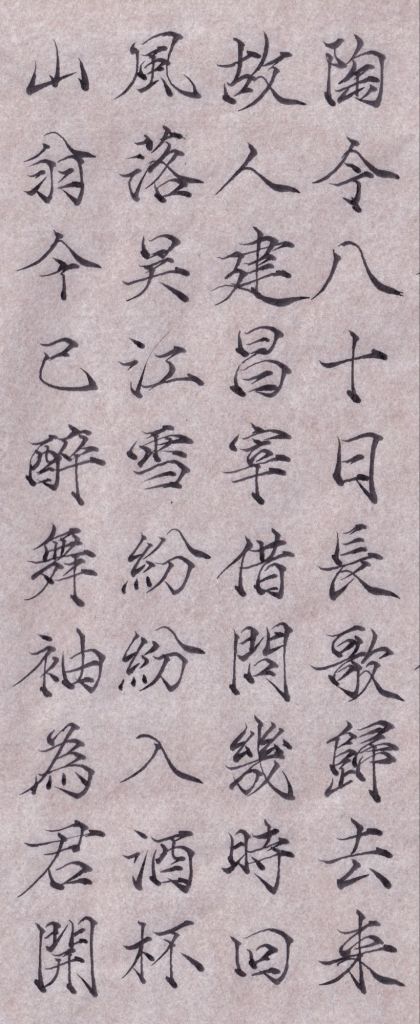 陶令八十日長歌歸去来
故人建昌宰借問幾時回
風落吴江雪紛紛入酒杯
山翁今已醉舞袖為君開